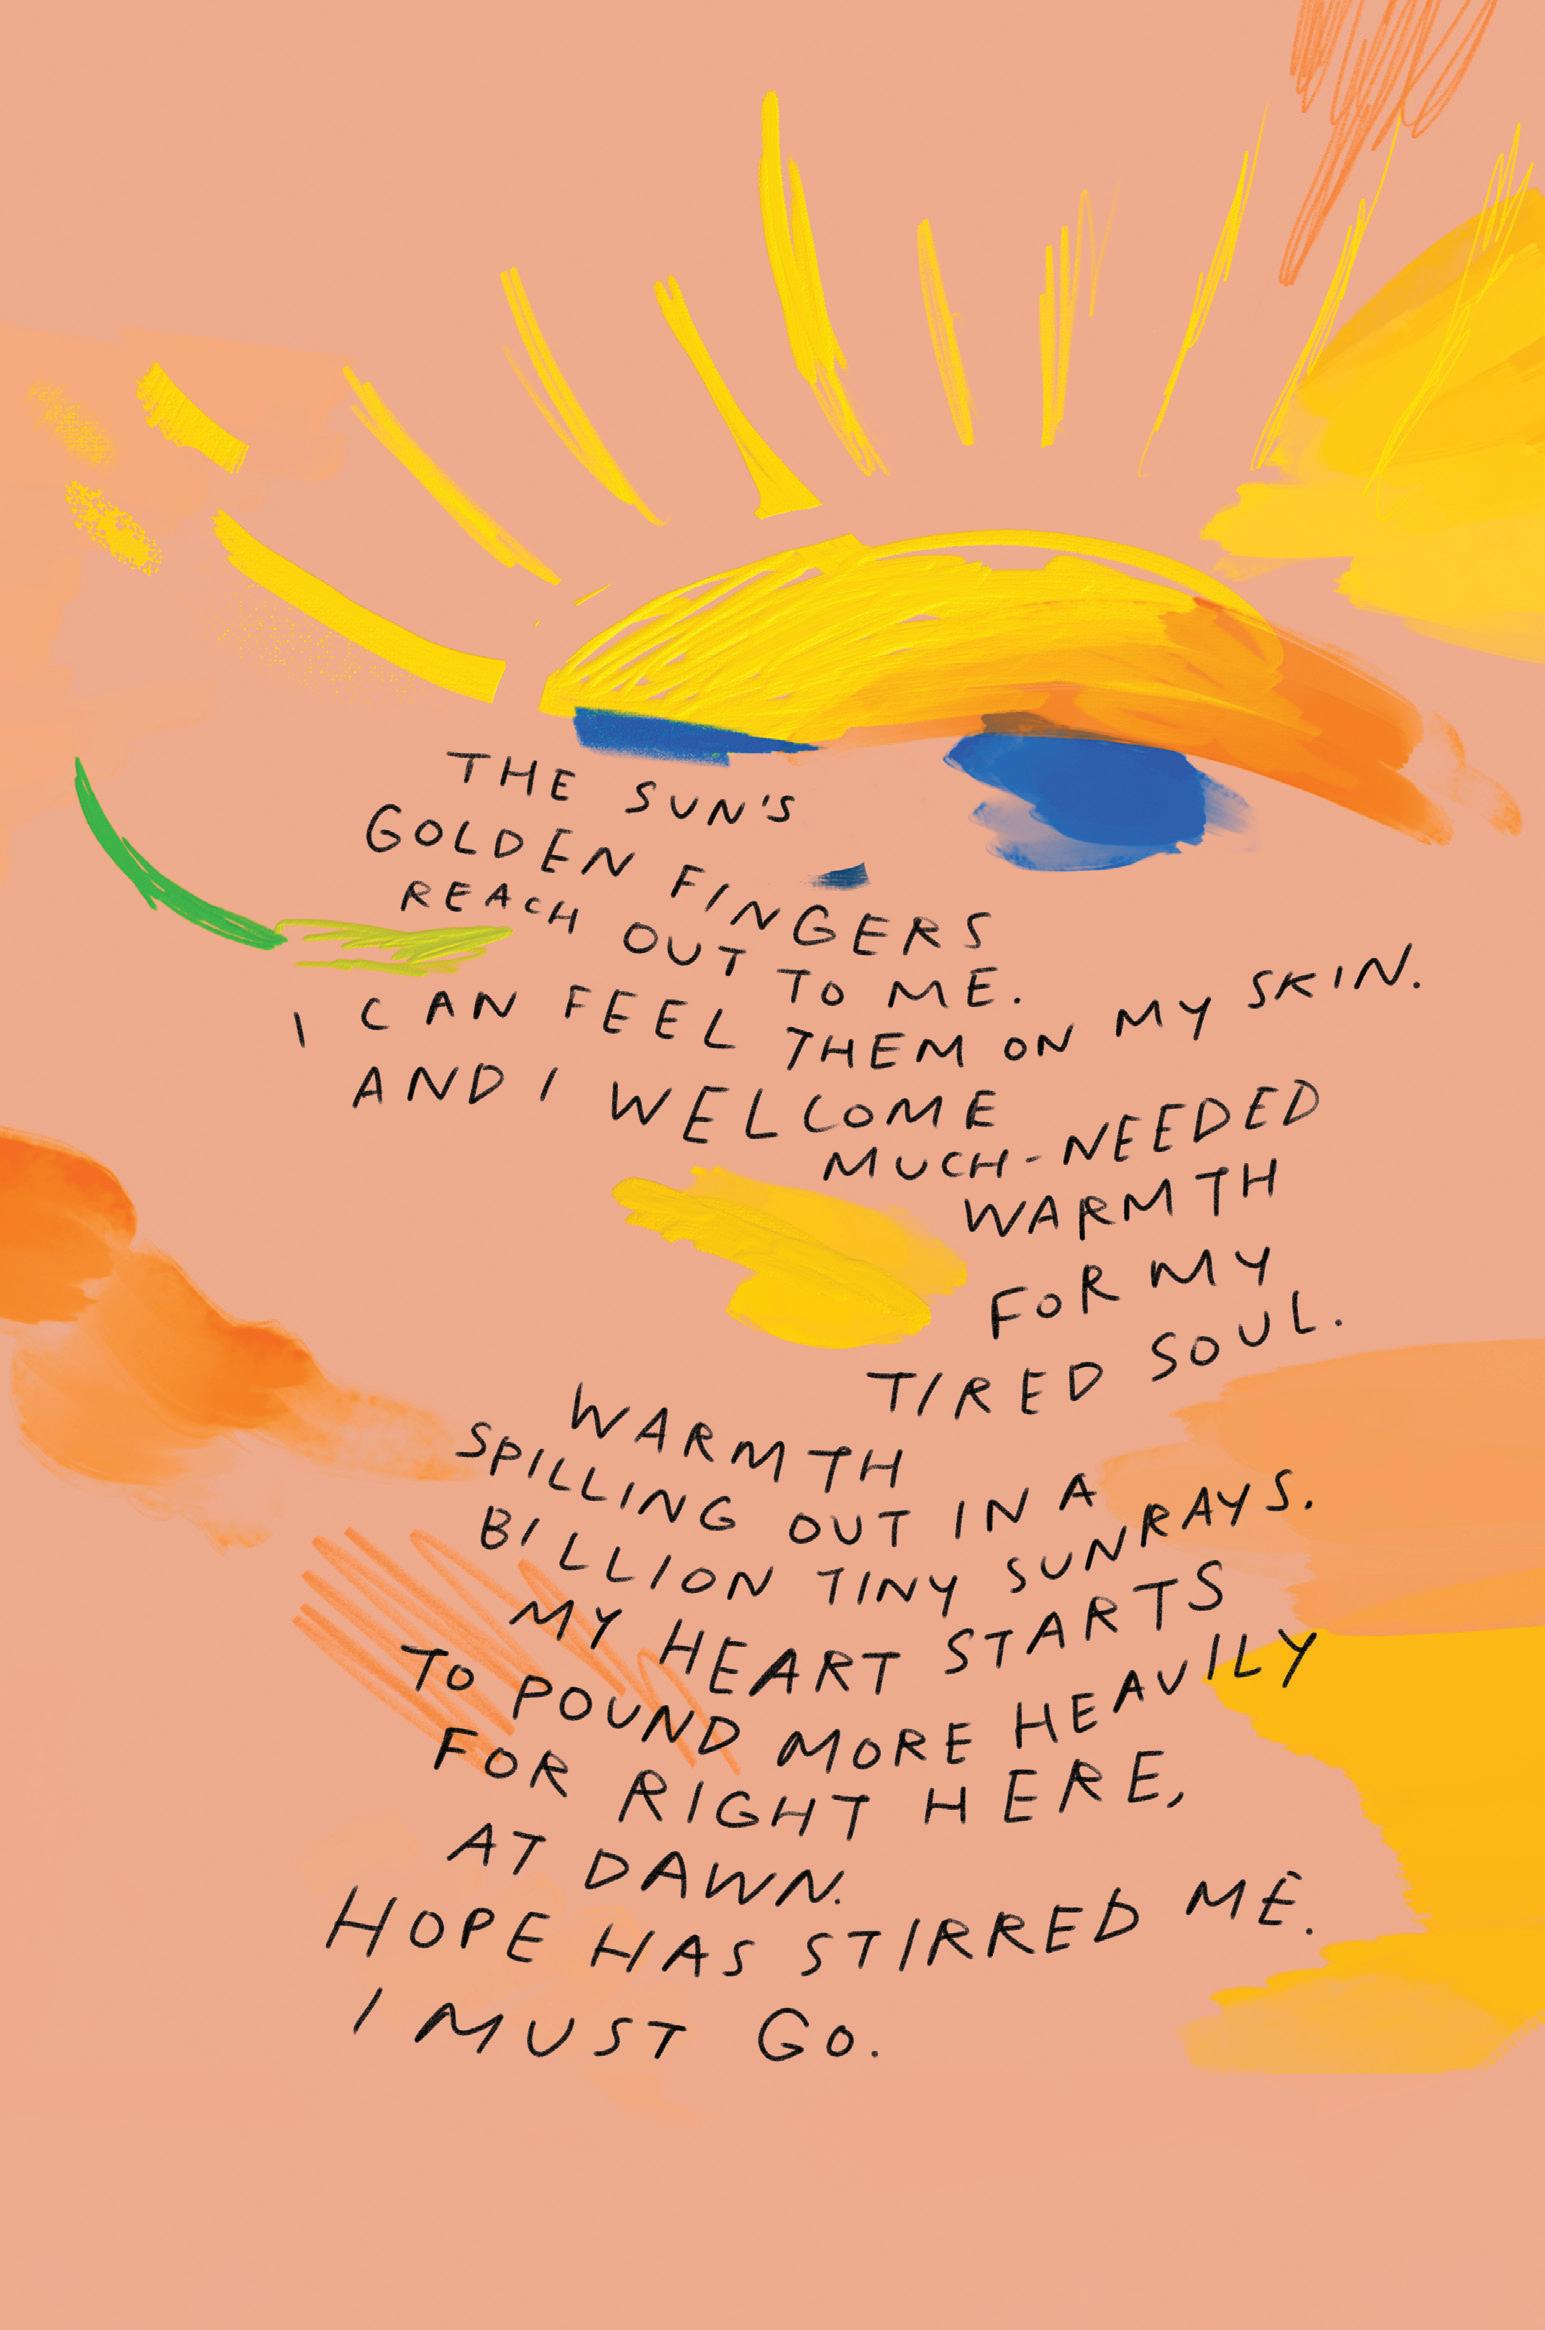 THE SUN'S
GOLDEN FINGERS
REACH OUT TO ME.
I CAN FEEL THEM ON MY SKIN.
AND I WELCOME
MUCH-NEEDED
WARMTH
FOR MY
TIRED SOUL.
WARMTH
SPILLING OUT IN A
BILLION TINY SUNRAYS.
MY HEART STARTS
TO POUND MORE HEAVILY
FOR RIGHT HERE,
AT DAWN.
HOPE HAS STIRRED ME.
I MUST GO.